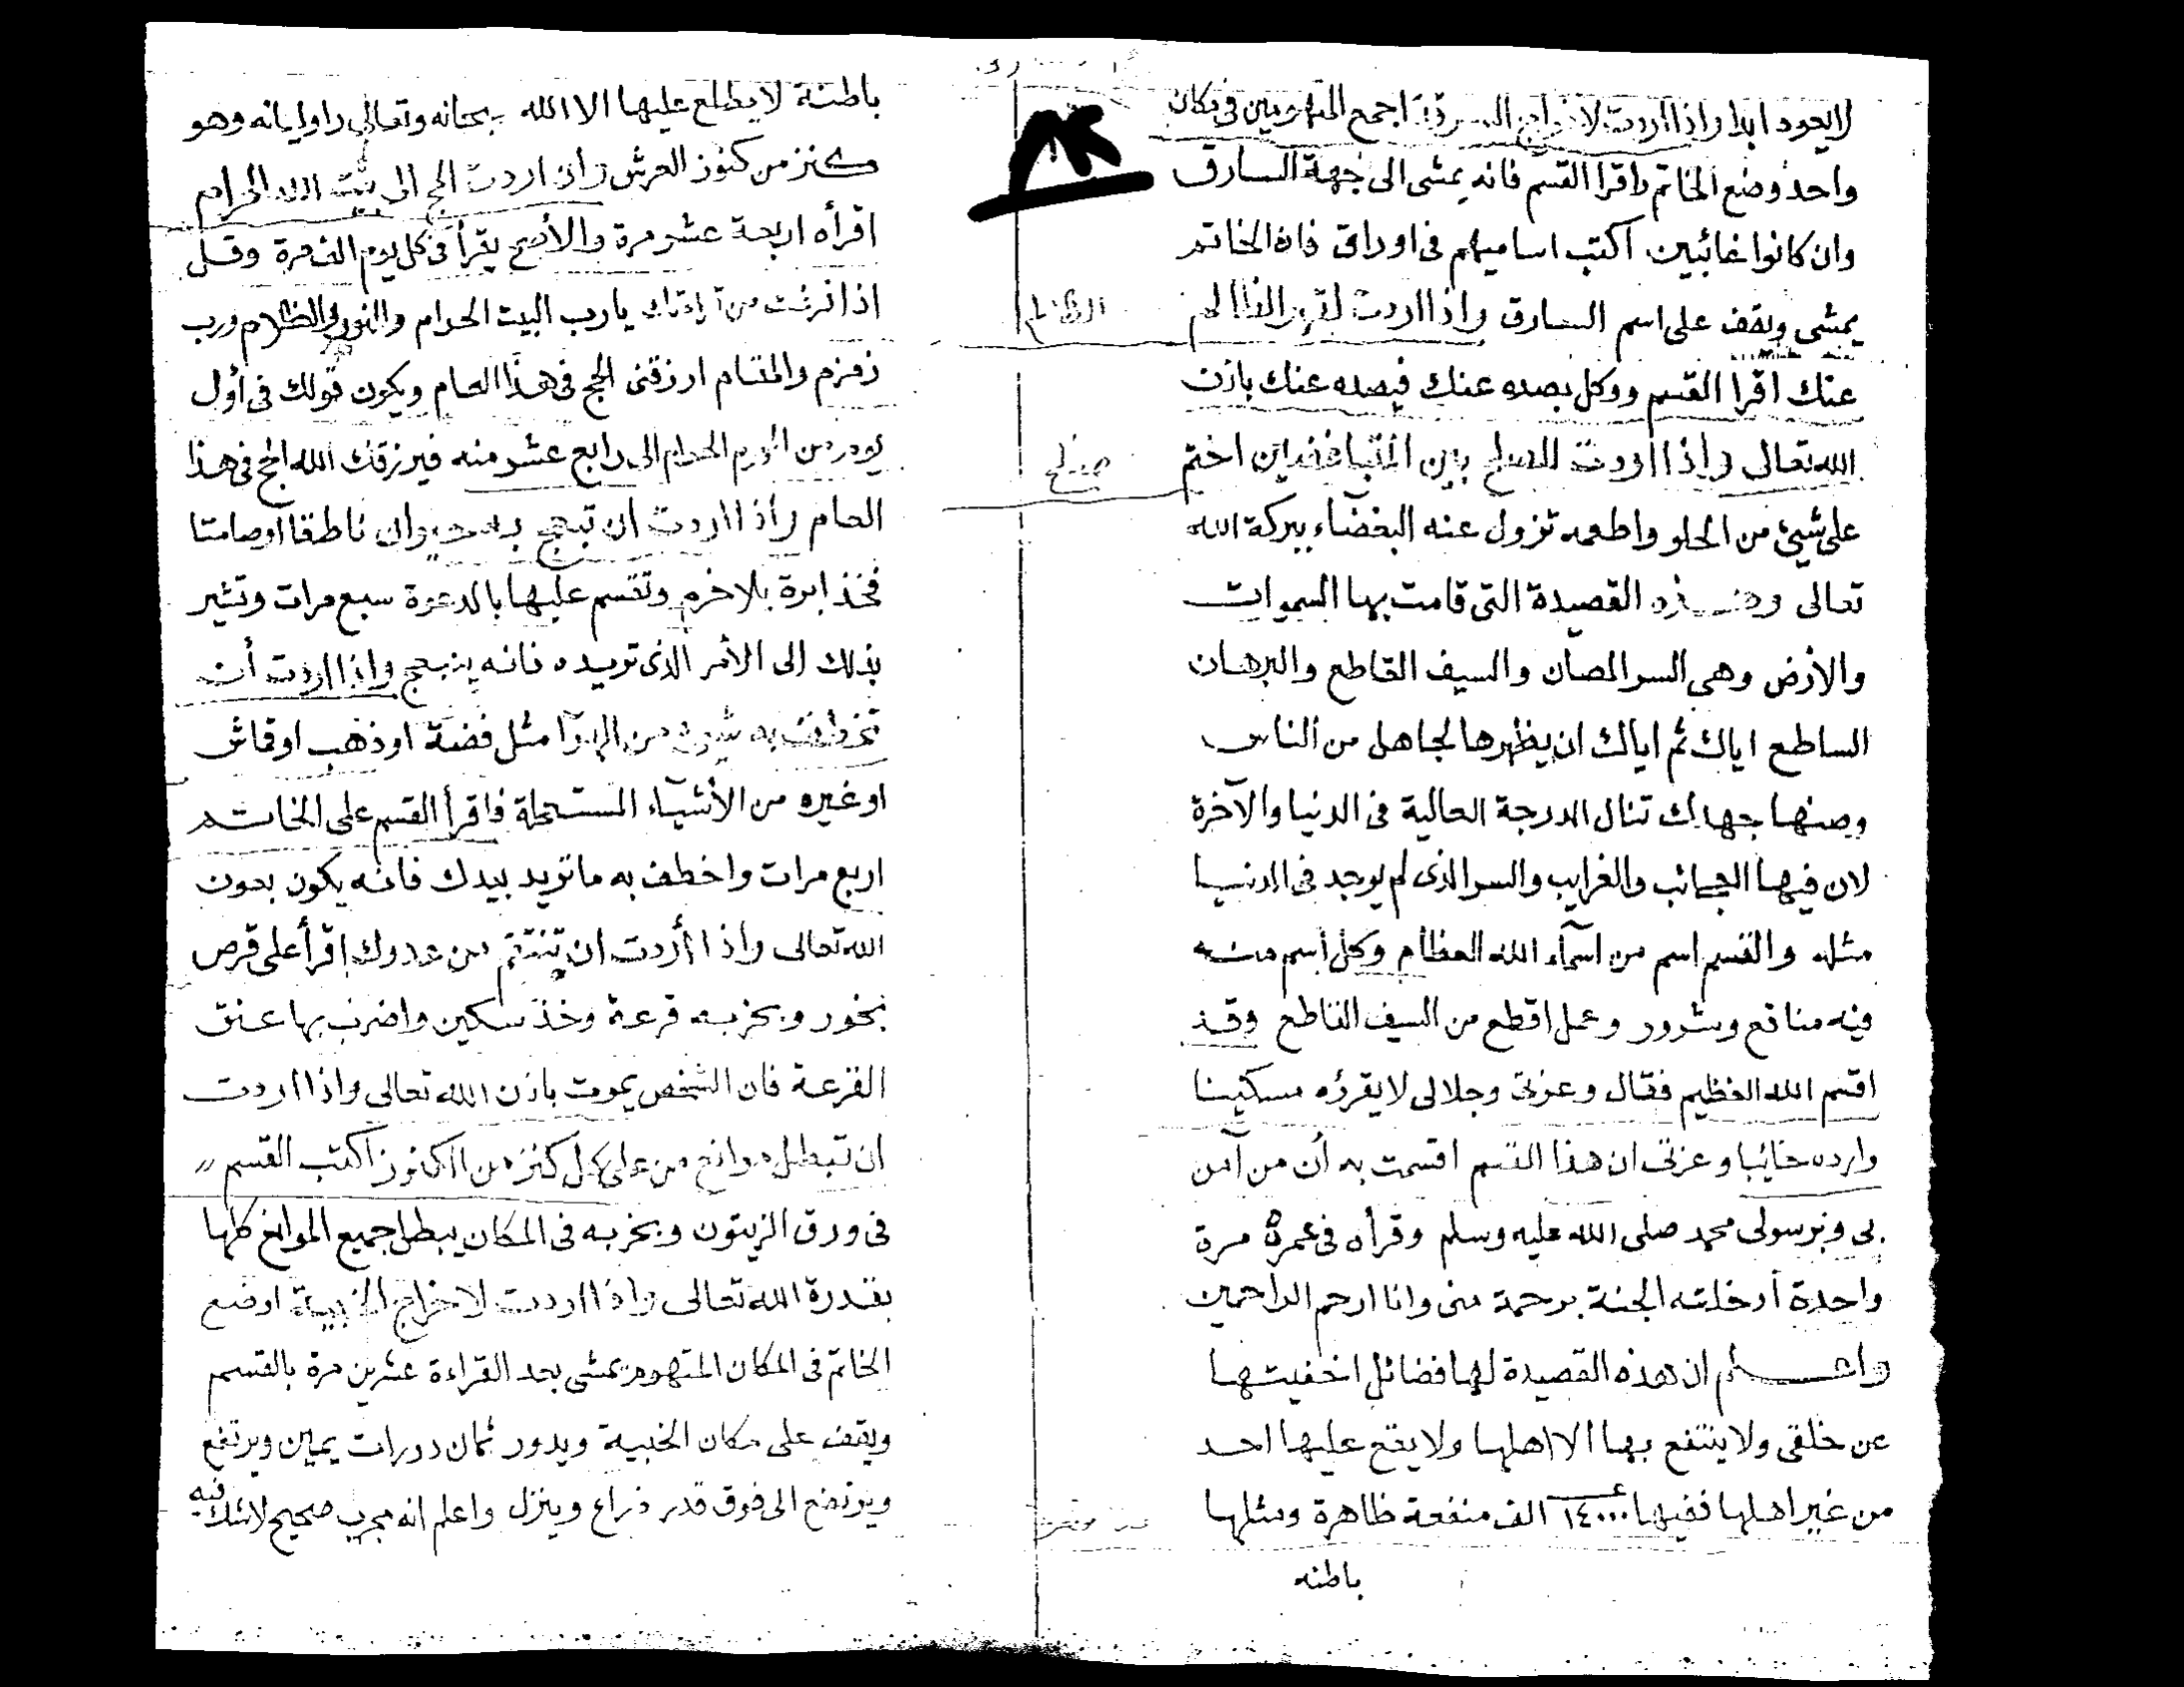 لايعود ابدا واذا اردت لاخراج السرقة اجمع المتهومين فى مكان
واحد وضع الخاتم واقرا القسم فانه يمشى الى جهة السارق
وان كانوا غائبين اكتب اساميهم فى اوراق فان الخاتم
يمشى ويقف على اسم السارق واذا اردت لقهر الظالم
عنك اقرا القسم ووكل بصده عنك فيصده عنك باذن
الله تعالى واذا اردت للصلح بين المتباغضين اختم
صلح
على شئ من الحلو واطعمه تزول عنه البغضآء ببركة الله
تعالى وهذه القصيدة التى قامت بها السموات
والأرض وهى السر المصان والسيف القاطع والبرهان
الساطع اياك ثم اياك ان يظهرها لجاهل من الناس
وصنها جهدك تنال الدرجة العالية فى الدنيا والآخرة
لان فيها العجائب والغرايب والسر الذى لم يوجد فى الدنيا
مثله والقسم اسم من اسمآء الله العظام وكل اسم منه
فيه منافع وشرور وعمل اقطع من السيف القاطع وقد
اقسم الله العظيم فقال وعزتى وجلالى لا يقرؤه مسكينا
وارده خائبا وعزتى ان هذا القسم اقسمت به أن من آمن
بى وبرسولى محمد صلى الله عليه وسلم وقرأه فى عمره مرة
واحدة أدخلته الجنة برحمة منى وانا ارحم الراحمين
واعلم ان هذه القصيدة لها فضائل اخفيتها
عن خلقى ولا ينتفع بها الا اهلها ولا يقع عليها احد
من غير اهلها ففيها ١٤٠٠٠ الف منفعة ظاهرة ومثلها
باطنه
باطنة لا يطلع عليها الا الله سبحانه وتعالى واوليائه وهو
كنز من كنوز العرش وان اردت الحج الى بيت الله الحرام
اقرأه اربعة عشر مرة والأصح يقرأ فى كل يوم الف مرة وقل
اذا فرغت من يا رب البيت الحرام والنور والظلام ورب
زمزم والمقام ارزقنى الحج فى هذا العام ويكون قولك فى أول
يوم من الحرام الى رابع عشر منه فيرزقك الله الحج فى هذا
العام واذا اردت ان تبعج به حيوان ناطقا اوصامتا
فخذ ابرة بلا خرم وتقسم عليها بالدعوة سبع مرات وتشير
بذلك الى الأمر الذى تريده فانه ينبعج واذا اردت أن
تخطف به شئ من مثل فضة اوذهب اوقماش
اوغيره من الأشيآء المستحلة فاقرأ القسم على الخاتم
اربع مرات واخطف به ما تريد بيدك فانه يكون بعون
الله تعالى واذا أردت ان تنتقم من عدوك اقرأ على قرص
بخور وبخر به قرعة وخذ سكين واضرب بها عنق
القرعة فان الشخص يموت باذن الله تعالى واذا اردت
ان تبطل موانع من على كل كنز من الكنوز اكتب القسم
فى ورق الزيتون وبخر به فى المكان يبطل جميع الموانع كلها
بقدرة الله تعالى واذا اردت لاخراج الخبية اوضع
الخاتم فى المكان المتهوم يمشى بعد القراءة عشرين مرة بالقسم
ويقف على مكان الخبية ويدور ثمان دورات يمين ويرتفع
ويرتفع الى فوق قدر ذراع وينزل واعلم انه مجرب صحيح لاشك فيه